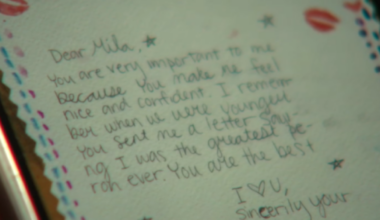 Dear Mila,
You are very important to me
because you make me feel
nice and confident. I remem
ber when we were younger
you sent me a letter say-
ing I was the greatest pe-
ron ever. You are the best
I ♡ U,
sincerily your